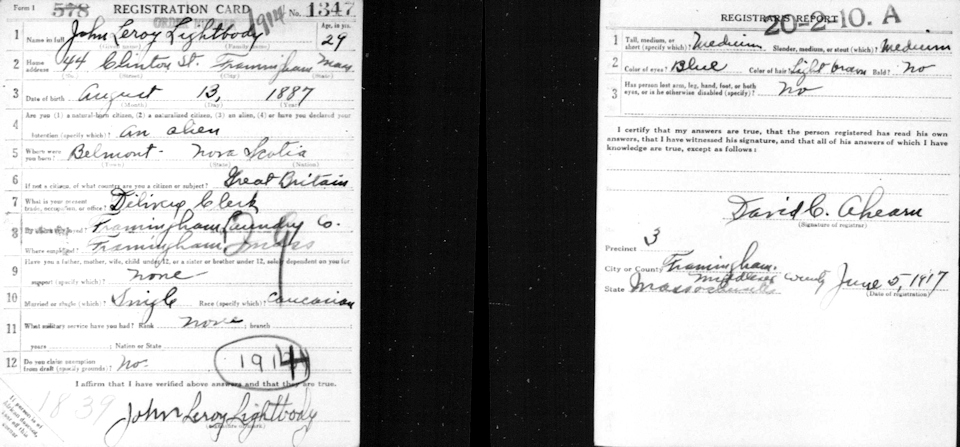 Form 1 578 REGISTRATION CARD No. 1347
1914
1 Name in full John Leroy Lightbody Age, in yrs. 29
(Given name) (Family name)
2 Home address 44 Clinton St. Framingham Mass
(No.) (Street) (City) (State)
3 Date of birth August 13, 1887
(Month) (Day) (Year)
4 Are you (1) a natural-born citizen, (2) a naturalized citizen, (3) an alien, (4) or have you declared your
intention (specify which)? an alien
5 Where were you born? Belmont - Nova Scotia
(Town) (State) (Nation)
6 If not a citizen, of what country are you a citizen or subject? Great Britain
7 What is your present trade, occupation, or office? Delivery Clerk
8 By whom employed? Framingham Laundry Co.
Where employed? Framingham Mass
9 Have you a father, mother, wife, child under 12, or a sister or brother under 12, solely dependent on you for
support (specify which)? none
10 Married or single (which)? Single Race (specify which)? Caucasian
11 What military service have you had? Rank none ; branch
years ; Nation or State
29
1914
12 Do you claim exemption from draft (specify grounds)? No.
I affirm that I have verified above answers and that they are true.
1839
John Leroy Lightbody
If person is of African descent, tear off this corner
REGISTRAR'S REPORT
20-2-10. A
1 Tall, medium, or short (specify which)? Medium Slender, medium, or stout (which)? Medium
2 Color of eyes? Blue Color of hair? Light brown Bald? No
3 Has person lost arm, leg, hand, foot, or both eyes, or is he otherwise disabled (specify)? No
I certify that my answers are true, that the person registered has read his own
answers, that I have witnessed his signature, and that all of his answers of which I have
knowledge are true, except as follows:
David C. Ahearn
(Signature of registrar)
Precinct 3
City or County Framingham.
Middlesex County
State Massachusetts June 5, 1917
(Date of registration)